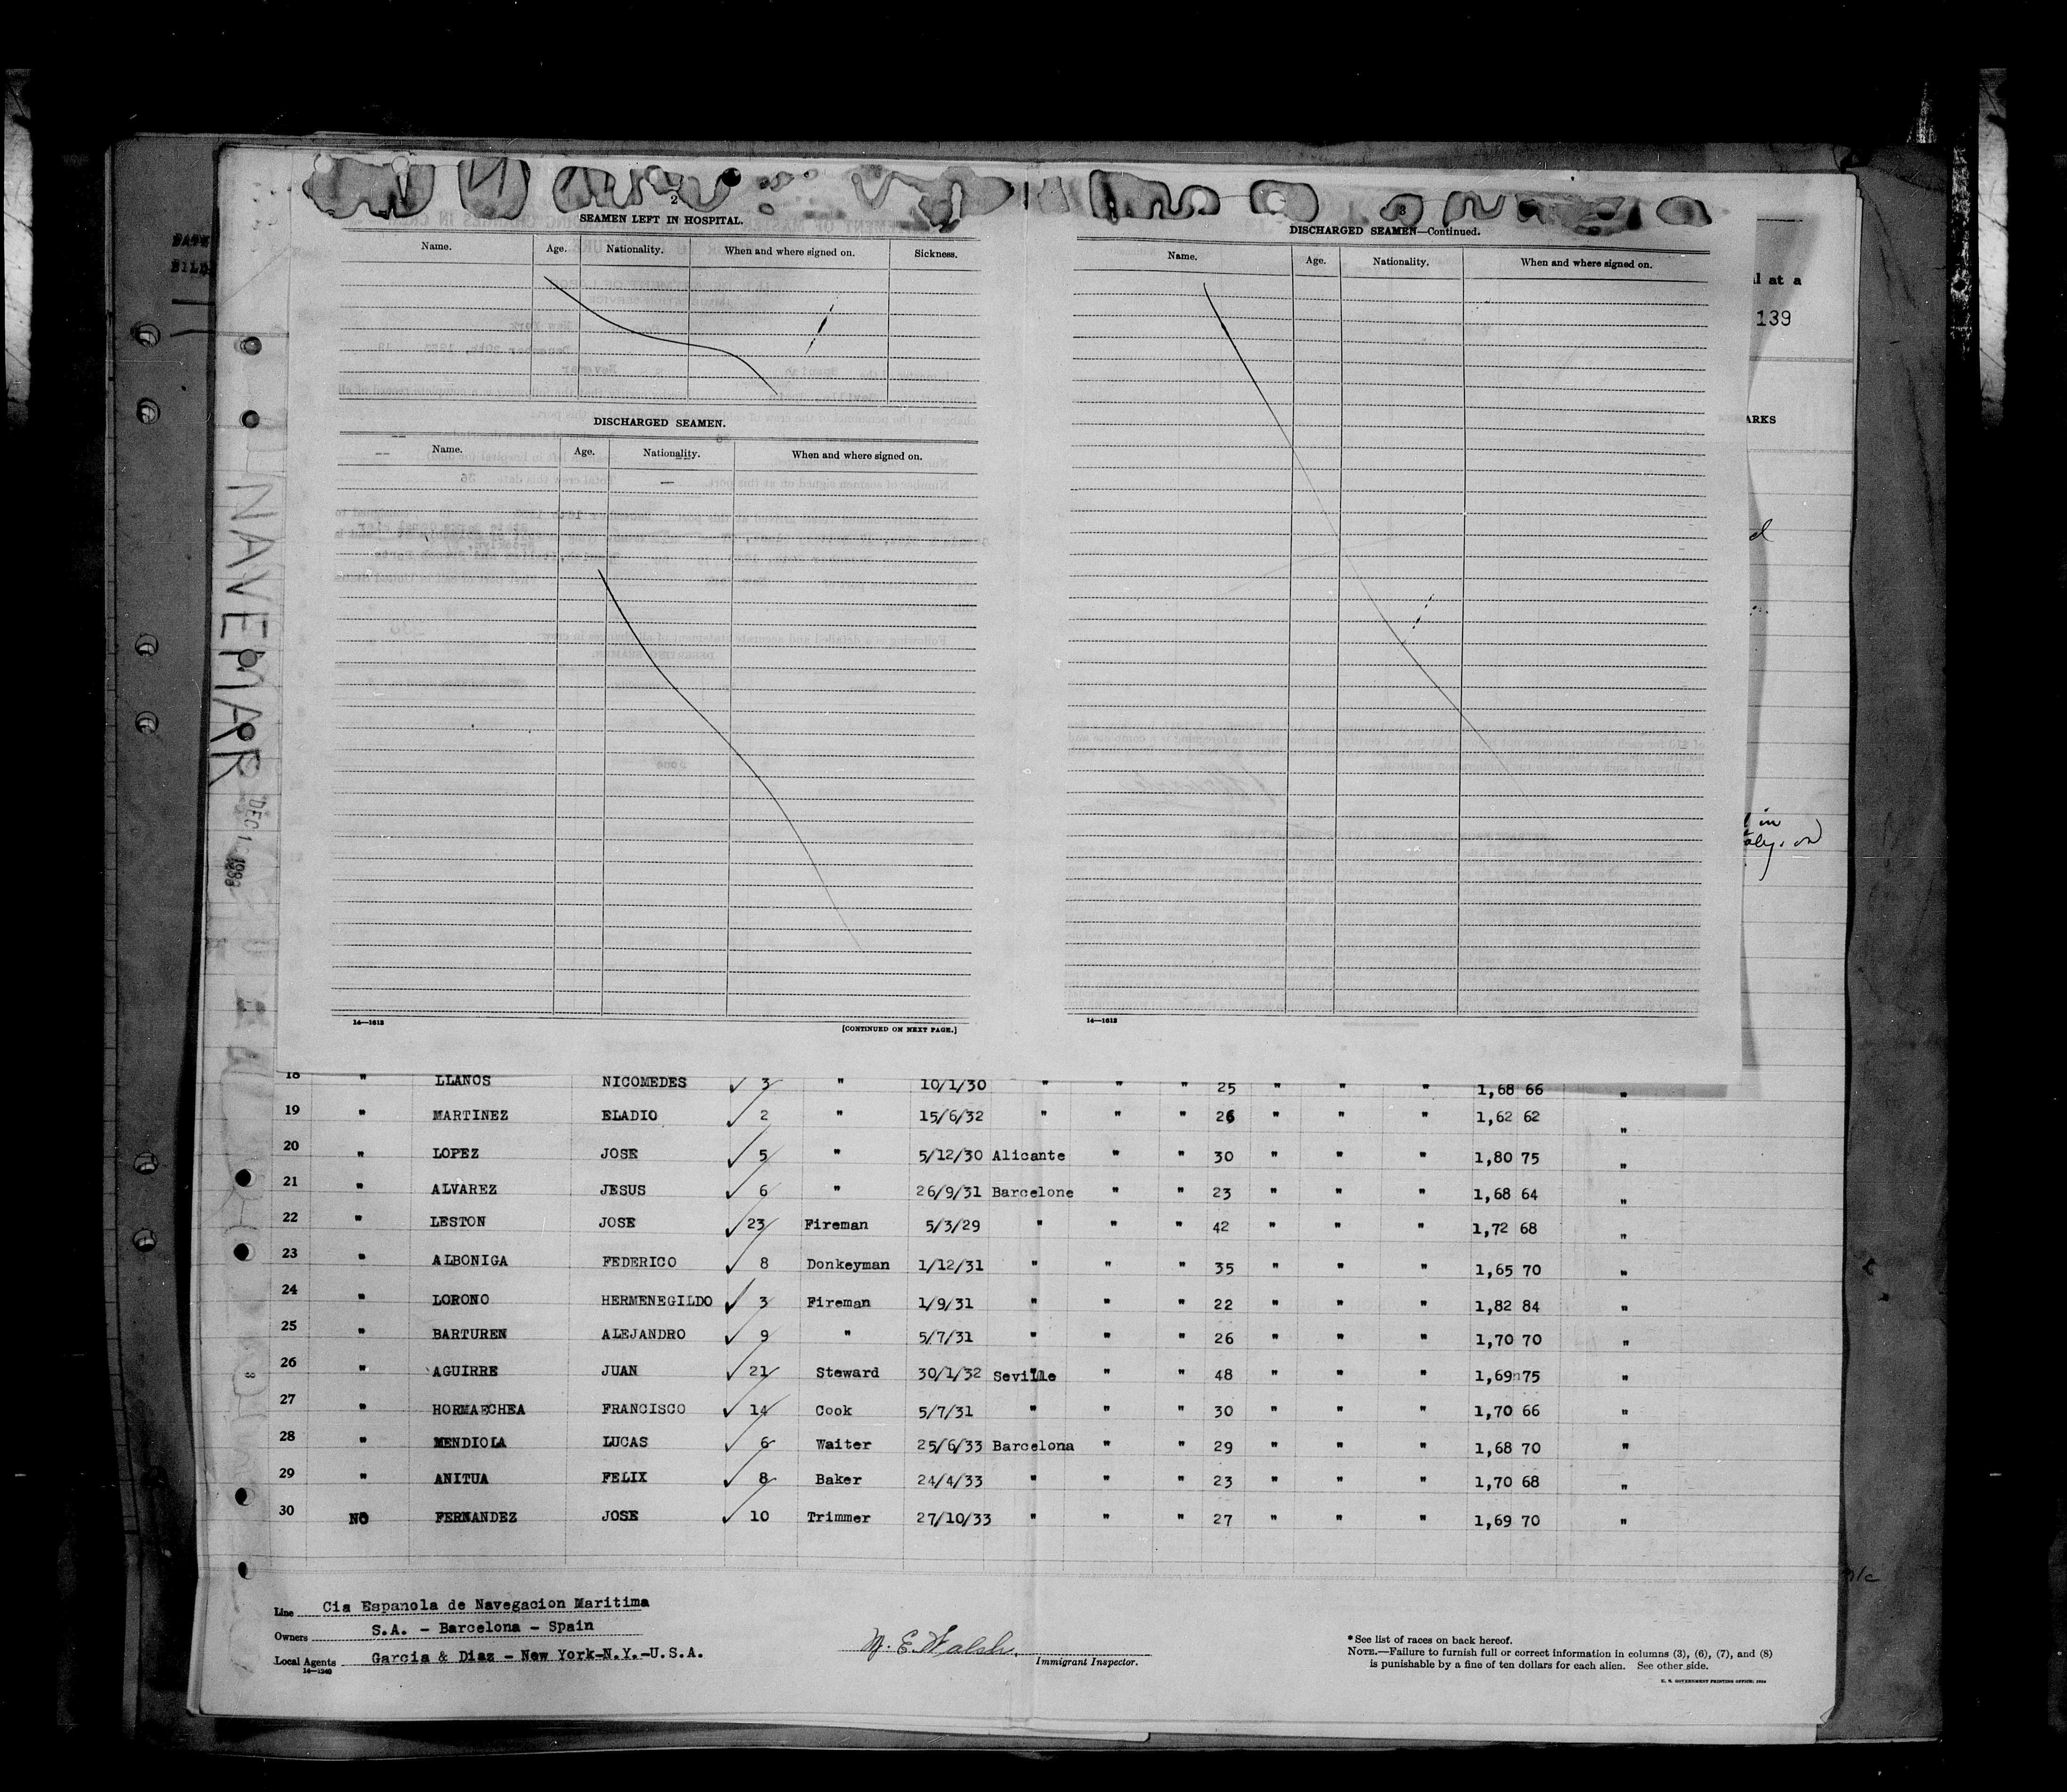 2
SEAMEN LEFT IN HOSPITAL.
Name. Age. Nationality. When and where signed on. Sickness.
DISCHARGED SEAMEN.
Name. Age. Nationality. When and where signed on.
14—1613
[CONTINUED ON NEXT PAGE.]
3
DISCHARGED SEAMEN—Continued.
Name. Age. Nationality. When and where signed on.
14—1613
l at a
139
ARKS
d
in
aly. on
NAVEMAR
DEC 1
1933
18 " LLANOS NICOMEDES ✓ 3 " 10/1/30 " " " 25 " " " 1,68 66 "
19 " MARTINEZ ELADIO ✓ 2 " 15/6/32 " " " 26 " " " 1,62 62 "
20 " LOPEZ JOSE ✓ 5 " 5/12/30 Alicante " " 30 " " " 1,80 75 "
21 " ALVAREZ JESUS ✓ 6 " 26/9/31 Barcelone " " 23 " " " 1,68 64 "
22 " LESTON JOSE ✓ 23 Fireman 5/3/29 " " " 42 " " " 1,72 68 "
23 " ALBONIGA FEDERICO ✓ 8 Donkeyman 1/12/31 " " " 35 " " " 1,65 70 "
24 " LORONO HERMENEGILDO ✓ 3 Fireman 1/9/31 " " " 22 " " " 1,82 84 "
25 " BARTUREN ALEJANDRO ✓ 9 " 5/7/31 " " " 26 " " " 1,70 70 "
26 " AGUIRRE JUAN ✓ 21 Steward 30/1/32 Seville " " 48 " " " 1,69 75 "
27 " HORMAECHEA FRANCISCO ✓ 14 Cook 5/7/31 " " " 30 " " " 1,70 66 "
28 " MENDIOLA LUCAS ✓ 6 Waiter 25/6/33 Barcelona " " 29 " " " 1,68 70 "
29 " ANITUA FELIX ✓ 8 Baker 24/4/33 " " " 23 " " " 1,70 68 "
30 NO FERNANDEZ JOSE ✓ 10 Trimmer 27/10/33 " " " 27 " " " 1,69 70 "
Line Cia Espanola de Navegacion Maritima
Owners S.A. - Barcelona - Spain
Local Agents Garcia & Diaz - New York-N.Y.-U.S.A.
14—1240
W. E. Walsh.
Immigrant Inspector.
*See list of races on back hereof.
NOTE.—Failure to furnish full or correct information in columns (3), (6), (7), and (8)
is punishable by a fine of ten dollars for each alien. See other side.